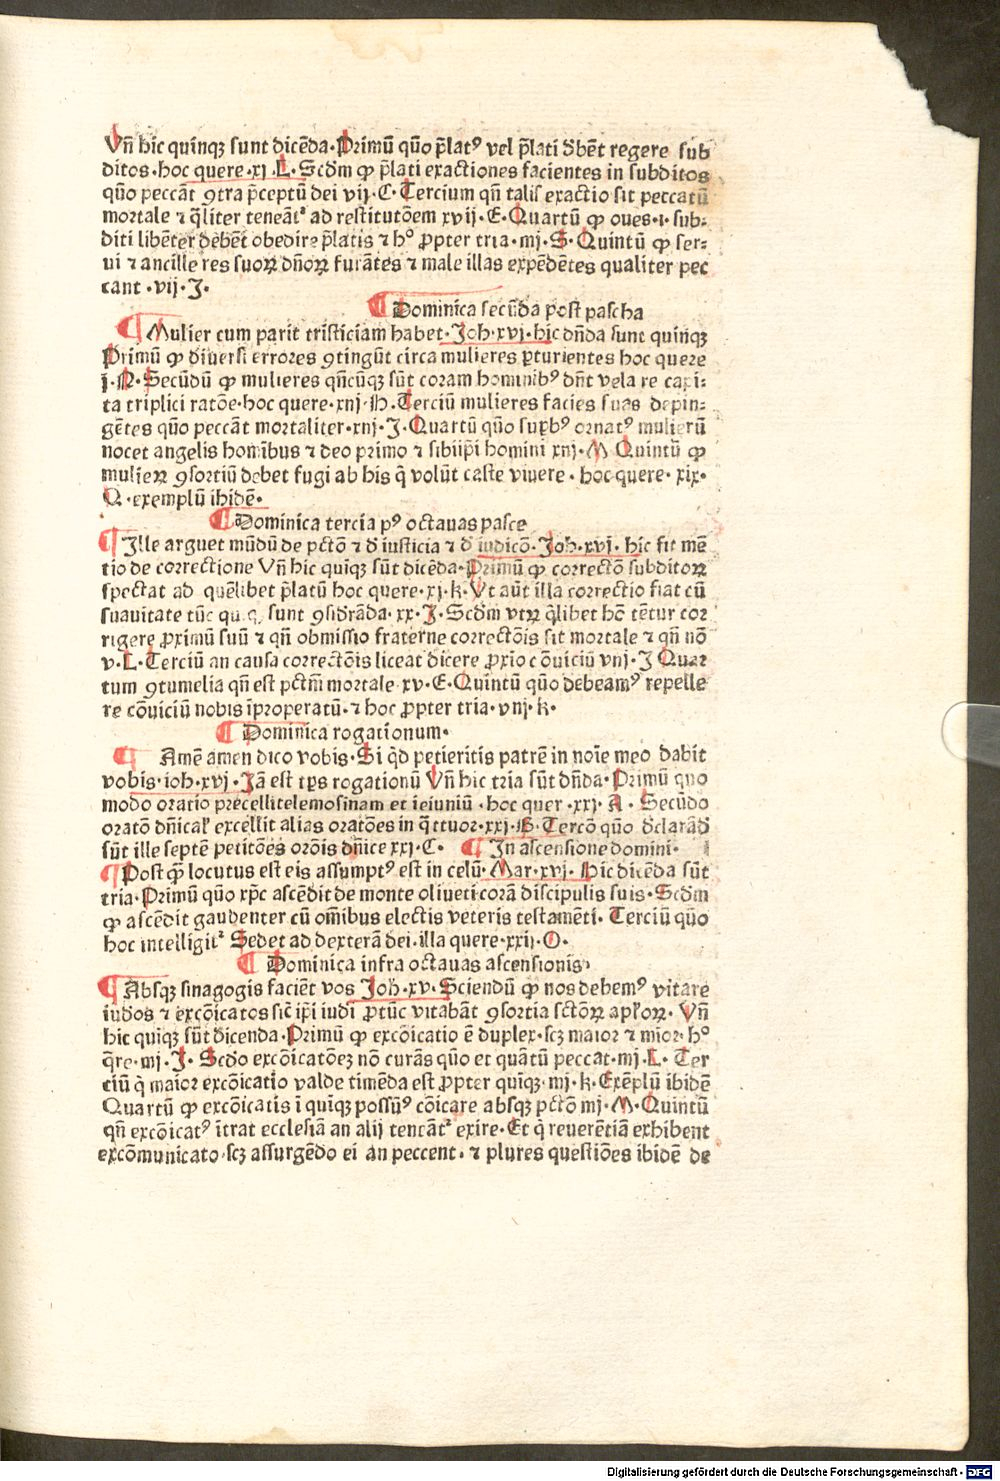 Vn̄ hic quinqꝫ sunt dicēda·Primū quō p̄latꝰ vel p̄lati d̄bēt regere sub
ditos·hoc quere·xj·L·Scd̄m ꝙ p̄lati exactiones facientes in subditos
quō peccāt ꝯtra p̄ceptū dei vij·C·Tercium qn̄ talis exactio sit peccatū
mortale ⁊ q̄liter teneāt᷑ ad restitutōem xvij·E·Quartū ꝙ oues·i·sub⸗
diti libēter debēt obedire p̄latis ⁊ hᵒ ꝓpter tria·mj·S·Quintū ꝙ ser⸗
ui ⁊ ancille res suoꝝ dn̄oꝝ furātes ⁊ male illas expēdētes qualiter pec
cant·vij·J·
¶ Dominica secūda post pascha
¶ Mulier cum parit tristiciam habet·Joh·xvj·hic dn̄da sunt quinqꝫ
Primū ꝙ diuersi errores ꝯtingūt circa mulieres ꝑturientes hoc quere
j·N·Secūdū ꝙ mulieres qn̄cūqꝫ sūt coram hominibꝰ dn̄t vela re capi⸗
ta triplici ratōe·hoc quere·xnj·H·Terciū mulieres facies suas depin⸗
gētes quō peccāt mortaliter·xnj·J·Quartū quō suꝑbꝰ ornatꝰ mulierū
nocet angelis homībus ⁊ deo primo ⁊ sibiip̄i homini xnj·M Quintū ꝙ
mulieꝝ ꝯsortiū debet fugi ab his q̄ volūt caste viuere·hoc quere·xix·
Q·exemplū ibidē·
¶ Dominica tercia pꝰ octauas pasce
¶ Ille arguet mūdū de pctō ⁊ d̄ iusticia ⁊ d̄ iudicō·Joh·xvj·hic fit mē
tio de correctione Vn̄ hic quiqꝫ sūt dicēda·Primū ꝙ correctō subditoꝝ
spectat ad quēlibet p̄latū hoc quere·xj·k·Vt aūt illa correctio fiat cū
suauitate tūc sunt ꝯsid̄rāda·xx·J·Scd̄m vtꝝ q̄libet hō tētur cor
rigere ꝓximū suū ⁊ qn̄ obmissio fraterne correctōis sit mortale ⁊ qn̄ nō
v·L·Terciū an causa correctōis liceat dicere ꝓxīo cōuiciū vnj·J Quar
tum ꝯtumelia qn̄ est pctm̄ mortale xv·E·Quintū quō debeamꝰ repelle
re cōuiciū nobis īproperatū·⁊ hoc ꝓpter tria·vnj·k·
¶ Dominica rogationum·
¶ Amē amen dico vobis·Si q̄d petieritis patrē in noīe meo dabit
vobis·ioh·xvj·Jā est tp̄s rogationū Vn̄ hic tria sūt dn̄da·Primū quo
modo oratio precellit elemosinam et ieiuniū·hoc quer·xxj·A·Secūdo
oratō dn̄ical' excellit alias oratōes in q̄ttuor·xxj·B·Tercō quō d̄clarād̄
sūt ille septē petitōes orōis dn̄ice xxj·C· ¶ In ascensione domini·
¶ Post q̄ꝫ locutus est eis assumptꝰ est in celū·Mar·xvj·Hic dicēda sūt
tria·Primū quō xp̄c ascēdit de monte oliueti corā discipulis suis·Scd̄m
ꝙ ascēdit gaudenter cū om̄ibus electis veteris testamēti·Terciū quō
hoc intelligit᷑ Sedet ad dexterā dei·illa quere·xxij·O·
¶ Dominica infra octauas ascensionis·
¶ Absqꝫ sinagogis faciēt vos Joh·xv·Sciendū ꝙ nos debemꝰ vitare
iudos ⁊ excōicatos sic̄ ip̄i iudī ꝓtūc vitabāt ꝯsortia sctōꝝ apl'oꝝ·Vn̄
hic quiqꝫ sūt dicenda·Primū ꝙ excōicatio ē duplex·scꝫ maior ⁊ mīor·hᵒ
q̄re·mj·J·Scd̄o excōicatōeꝫ nō curās quō et quātū peccat·mj·L·Ter
ciū q̄ maior excōicatio valde timēda est ꝓpter quiqꝫ·mj·k·Exēplū ibidē
Quartū ꝙ excōicatis ī quiqꝫ possūꝰ cōicare absqꝫ pctō mj·M·Quintū
qn̄ excōicatꝰ ītrat ecclesiā an alij teneāt᷑ exire·Et q̄ reuerētiā exhibent
excōmunicato·scꝫ assurgēdo ei an peccent·⁊ plures questiōes ibidē de
Digitalisierung gefördert durch die Deutsche Forschungsgemeinschaft - DFG